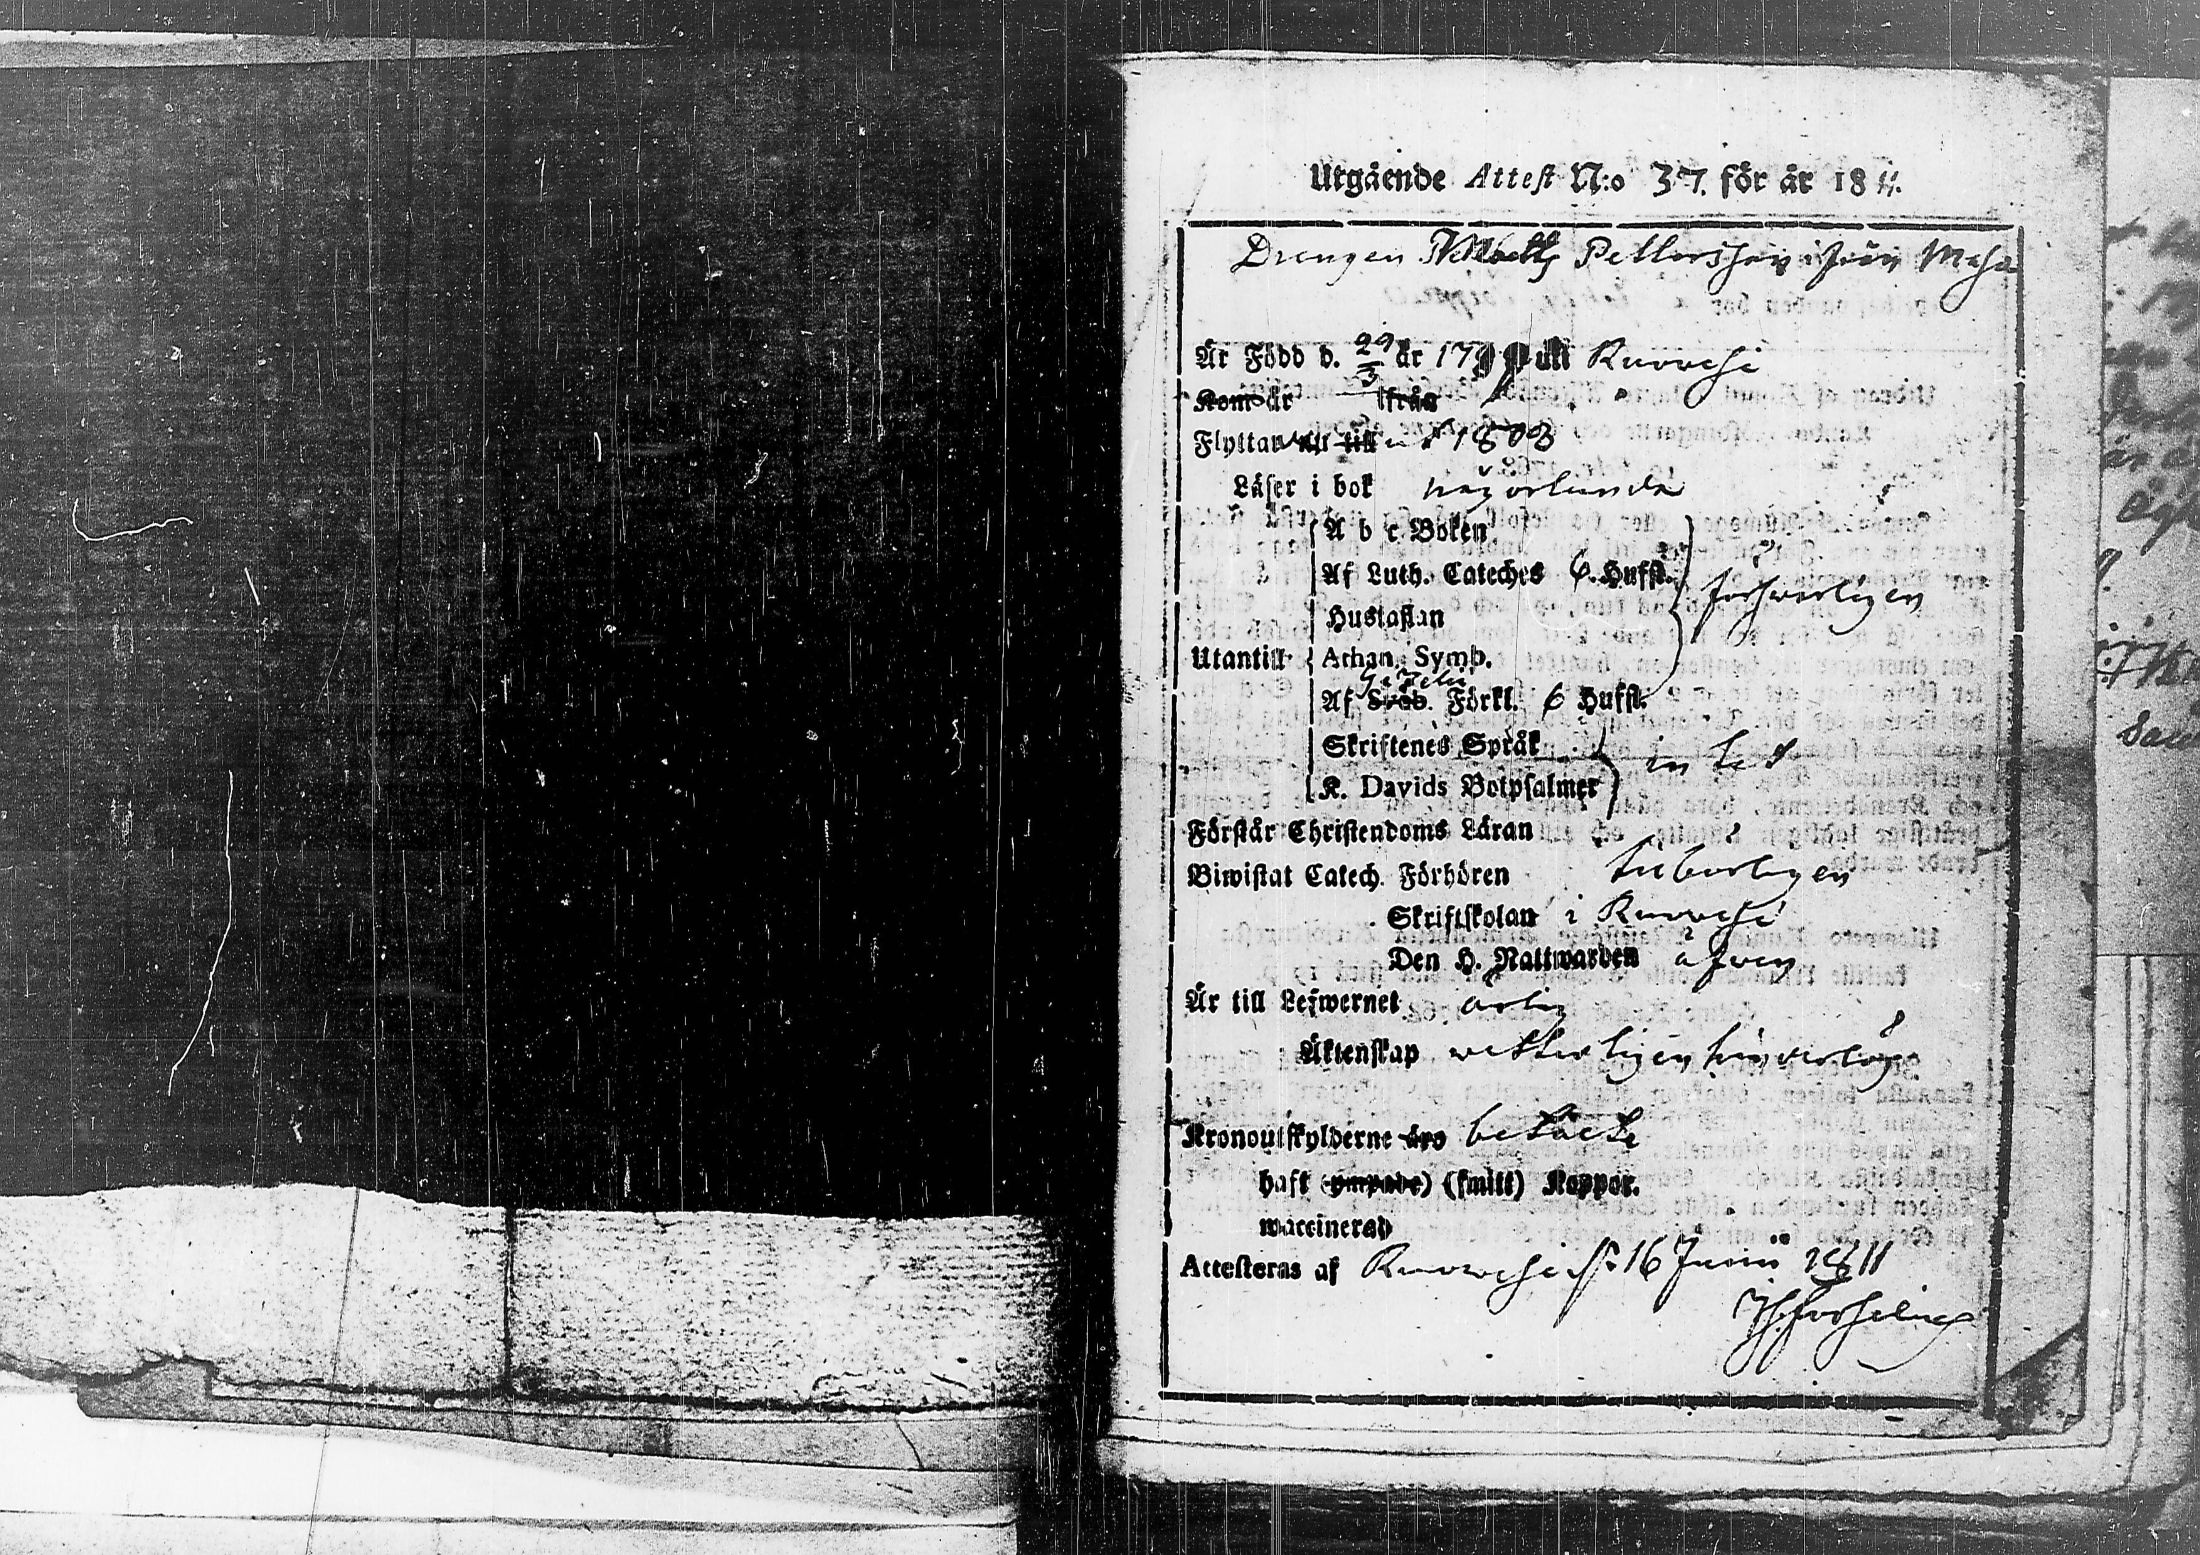 Utgående Attest N:o 37. för år 1811.
Drengen Matts Pettersson ifrån
Är Född d. 29/3 år 179 uti Ruovesi
Kom år ifrån
Flyttar till 1808
Läser i bok någorlunda
A b c Boken
Af Luth. Cateches 6. Hufst. försvarligen
Hustaflan
Utantill Athan. Symb.
Gezelii
Af Sveb. Förkl. 6 Hufst.
Skriftenes Språk intet
K. Davids Botpsalmer
Förstår Christendoms Läran
Biwistat Catech. Förhören tilbörligen
Skriftskolan i Ruovesi
Den H. Nattwarden äfven
Är till Lefwernet ärlig
Äktenskap vetterligen hinderlös
Kronoutskylderne äro betalte
haft (ympade) (smitt) Koppor.
waccinerad
Attesteras af Ruovesi d. 16 Junii 1811